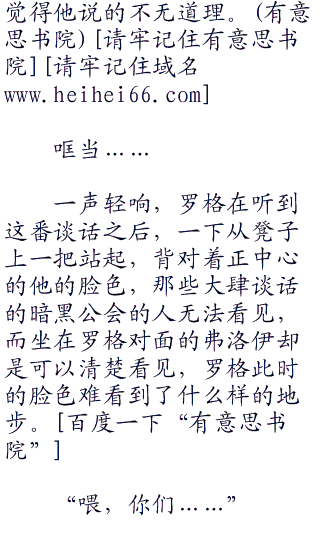 觉得他说的不无道理。(有意
思书院)[请牢记住有意思书
院][请牢记住域名
www.heihei66.com]
哐当……
一声轻响，罗格在听到
这番谈话之后，一下从凳子
上一把站起，背对着正中心
的他的脸色，那些大肆谈话
的暗黑公会的人无法看见，
而坐在罗格对面的弗洛伊却
是可以清楚看见，罗格此时
的脸色难看到了什么样的地
步。[百度一下“有意思书
院”]
“喂，你们……”